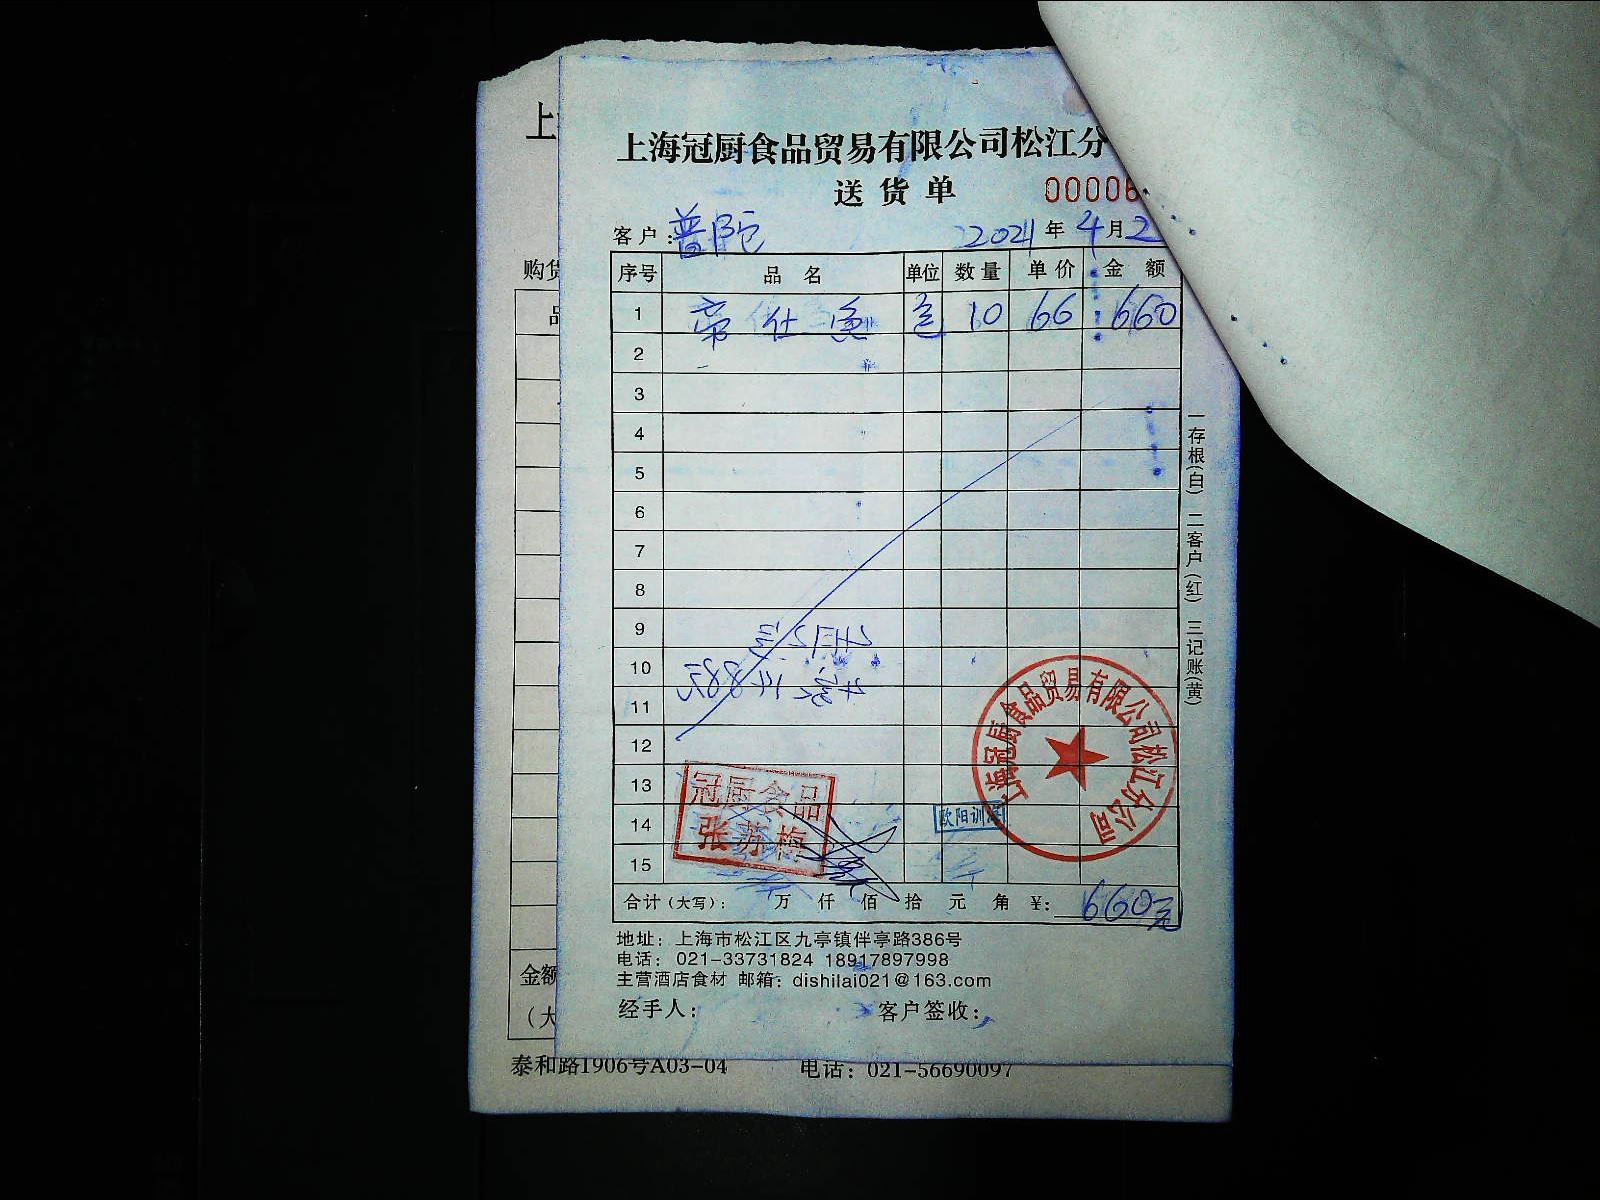 上海冠厨食品贸易有限公司松江分
送货单
00006
客户：普陀 2021年4月2
序号 品名 单位 数量 单价 金额
1 帝仕鱼 包 10 66 660
2
3
4
5
6
7
8
9
10
11
12
13
14
15
冠厨食品
张苏梅
欧阳训
上海冠厨食品贸易有限公司松江分公司
合计（大写）： 万 仟 佰 拾 元 角 ¥：660元
地址：上海市松江区九亭镇伴亭路386号
电话：021-33731824 18917897998
主营酒店食材 邮箱：dishilai021@163.com
经手人： 客户签收：
一存根(白) 二客户(红) 三记账(黄)
上
购货
品
金额
（大
泰和路1906号A03-04 电话：021-56690097